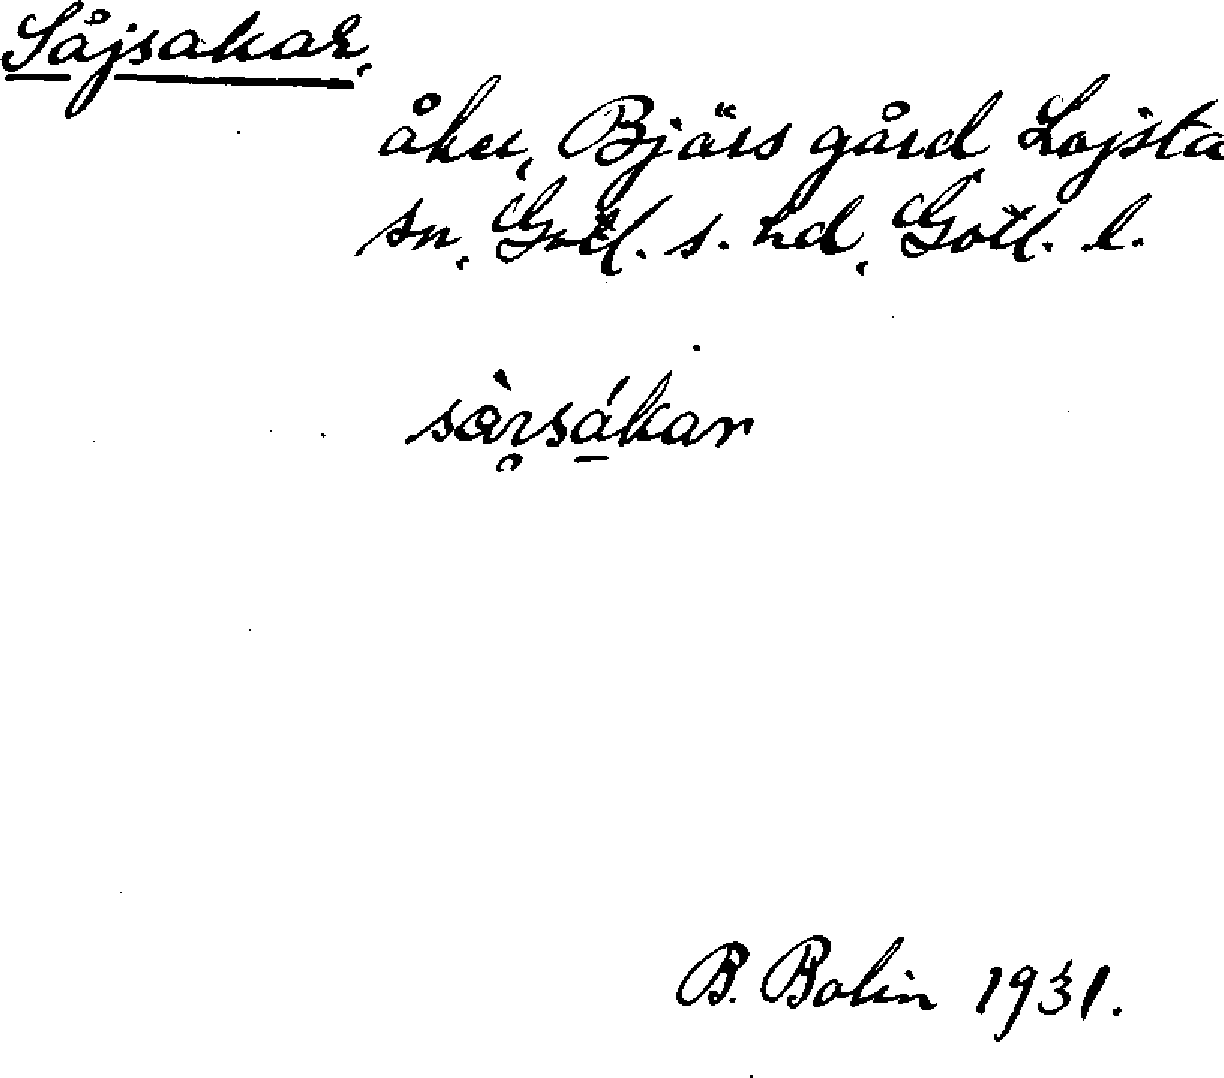 Såjsakar,
åker, Bjärs gård, Lojsta
sn, Gotl. s. hd, Gotl. l.
B. Bolin 1931.